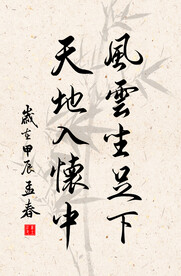 風雲生足下
天地入懷中
歲在甲辰孟春